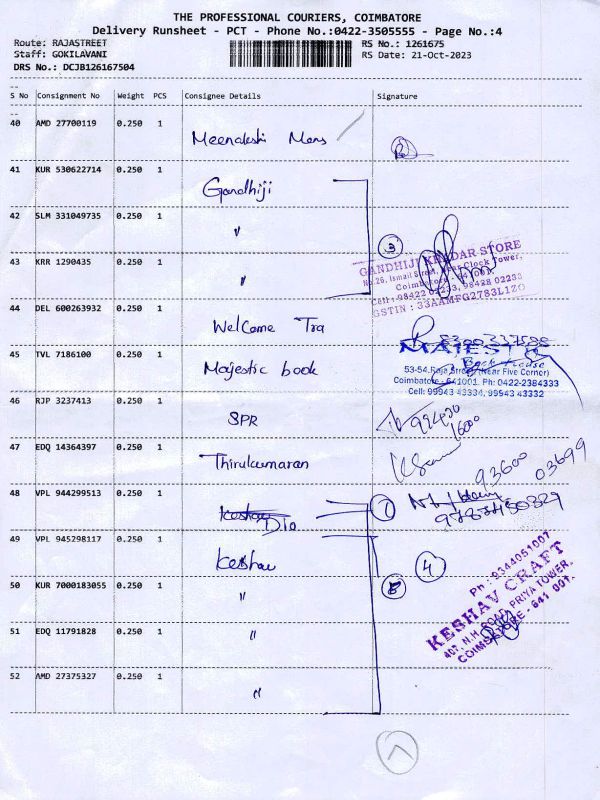 THE PROFESSIONAL COURIERS, COIMBATORE
Delivery Runsheet - PCT - Phone No.:0422-3505555 - Page No.:4
Route: RAJASTREET
RS No.: 1261675
Staff: GOKILAVANI
RS Date: 21-Oct-2023
DRS No.: DCJB126167504
S No Consignment No Weight PCS Consignee Details Signature
40 AMD 27700119 0.250 1 Meenakshi Mens
41 KUR 530622714 0.250 1 Gandhiji
42 SLM 331049735 0.250 1 "
3
43 KRR 1290435 0.250 1 "
GANDHIJI KHADAR STORE
No.26, Ismail Street, Near Clock Tower,
Coimbatore - 641 001.
Cell : 98422 02233, 98428 02233
GSTIN : 33AAMFG2783L1ZO
44 DEL 600263932 0.250 1 Welcome Tra
45 TVL 7186100 0.250 1 Majestic book
MAJESTIC
Book House
53-54, Raja Street (Near Five Corner)
Coimbatore - 641001. Ph: 0422-2384333
Cell: 99943 43334, 99943 43332
46 RJP 3237413 0.250 1 SPR
47 EDQ 14364397 0.250 1 Thirukumaran
93600 03699
48 VPL 944299513 0.250 1 Dio
1
49 VPL 945298117 0.250 1 Keshav
4
50 KUR 7000183055 0.250 1 "
5
51 EDQ 11791828 0.250 1 "
52 AMD 27375327 0.250 1 "
Ph : 9344051007
KESHAV CRAFT
407, N.H. ROAD, PRIYA TOWER,
COIMBATORE - 641 001.